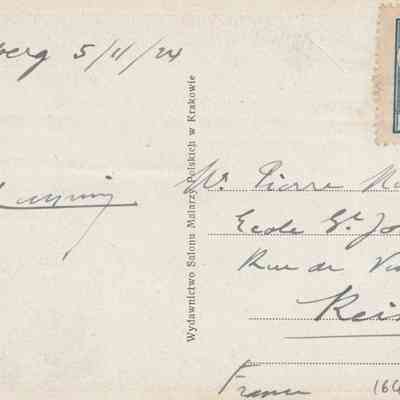 berg 5/11/24
Wydawnictwo Salonu Malarzy Polskich w Krakowie
Mr. Pierre
Ecole St. Jo
Rue de
Reis
France
166